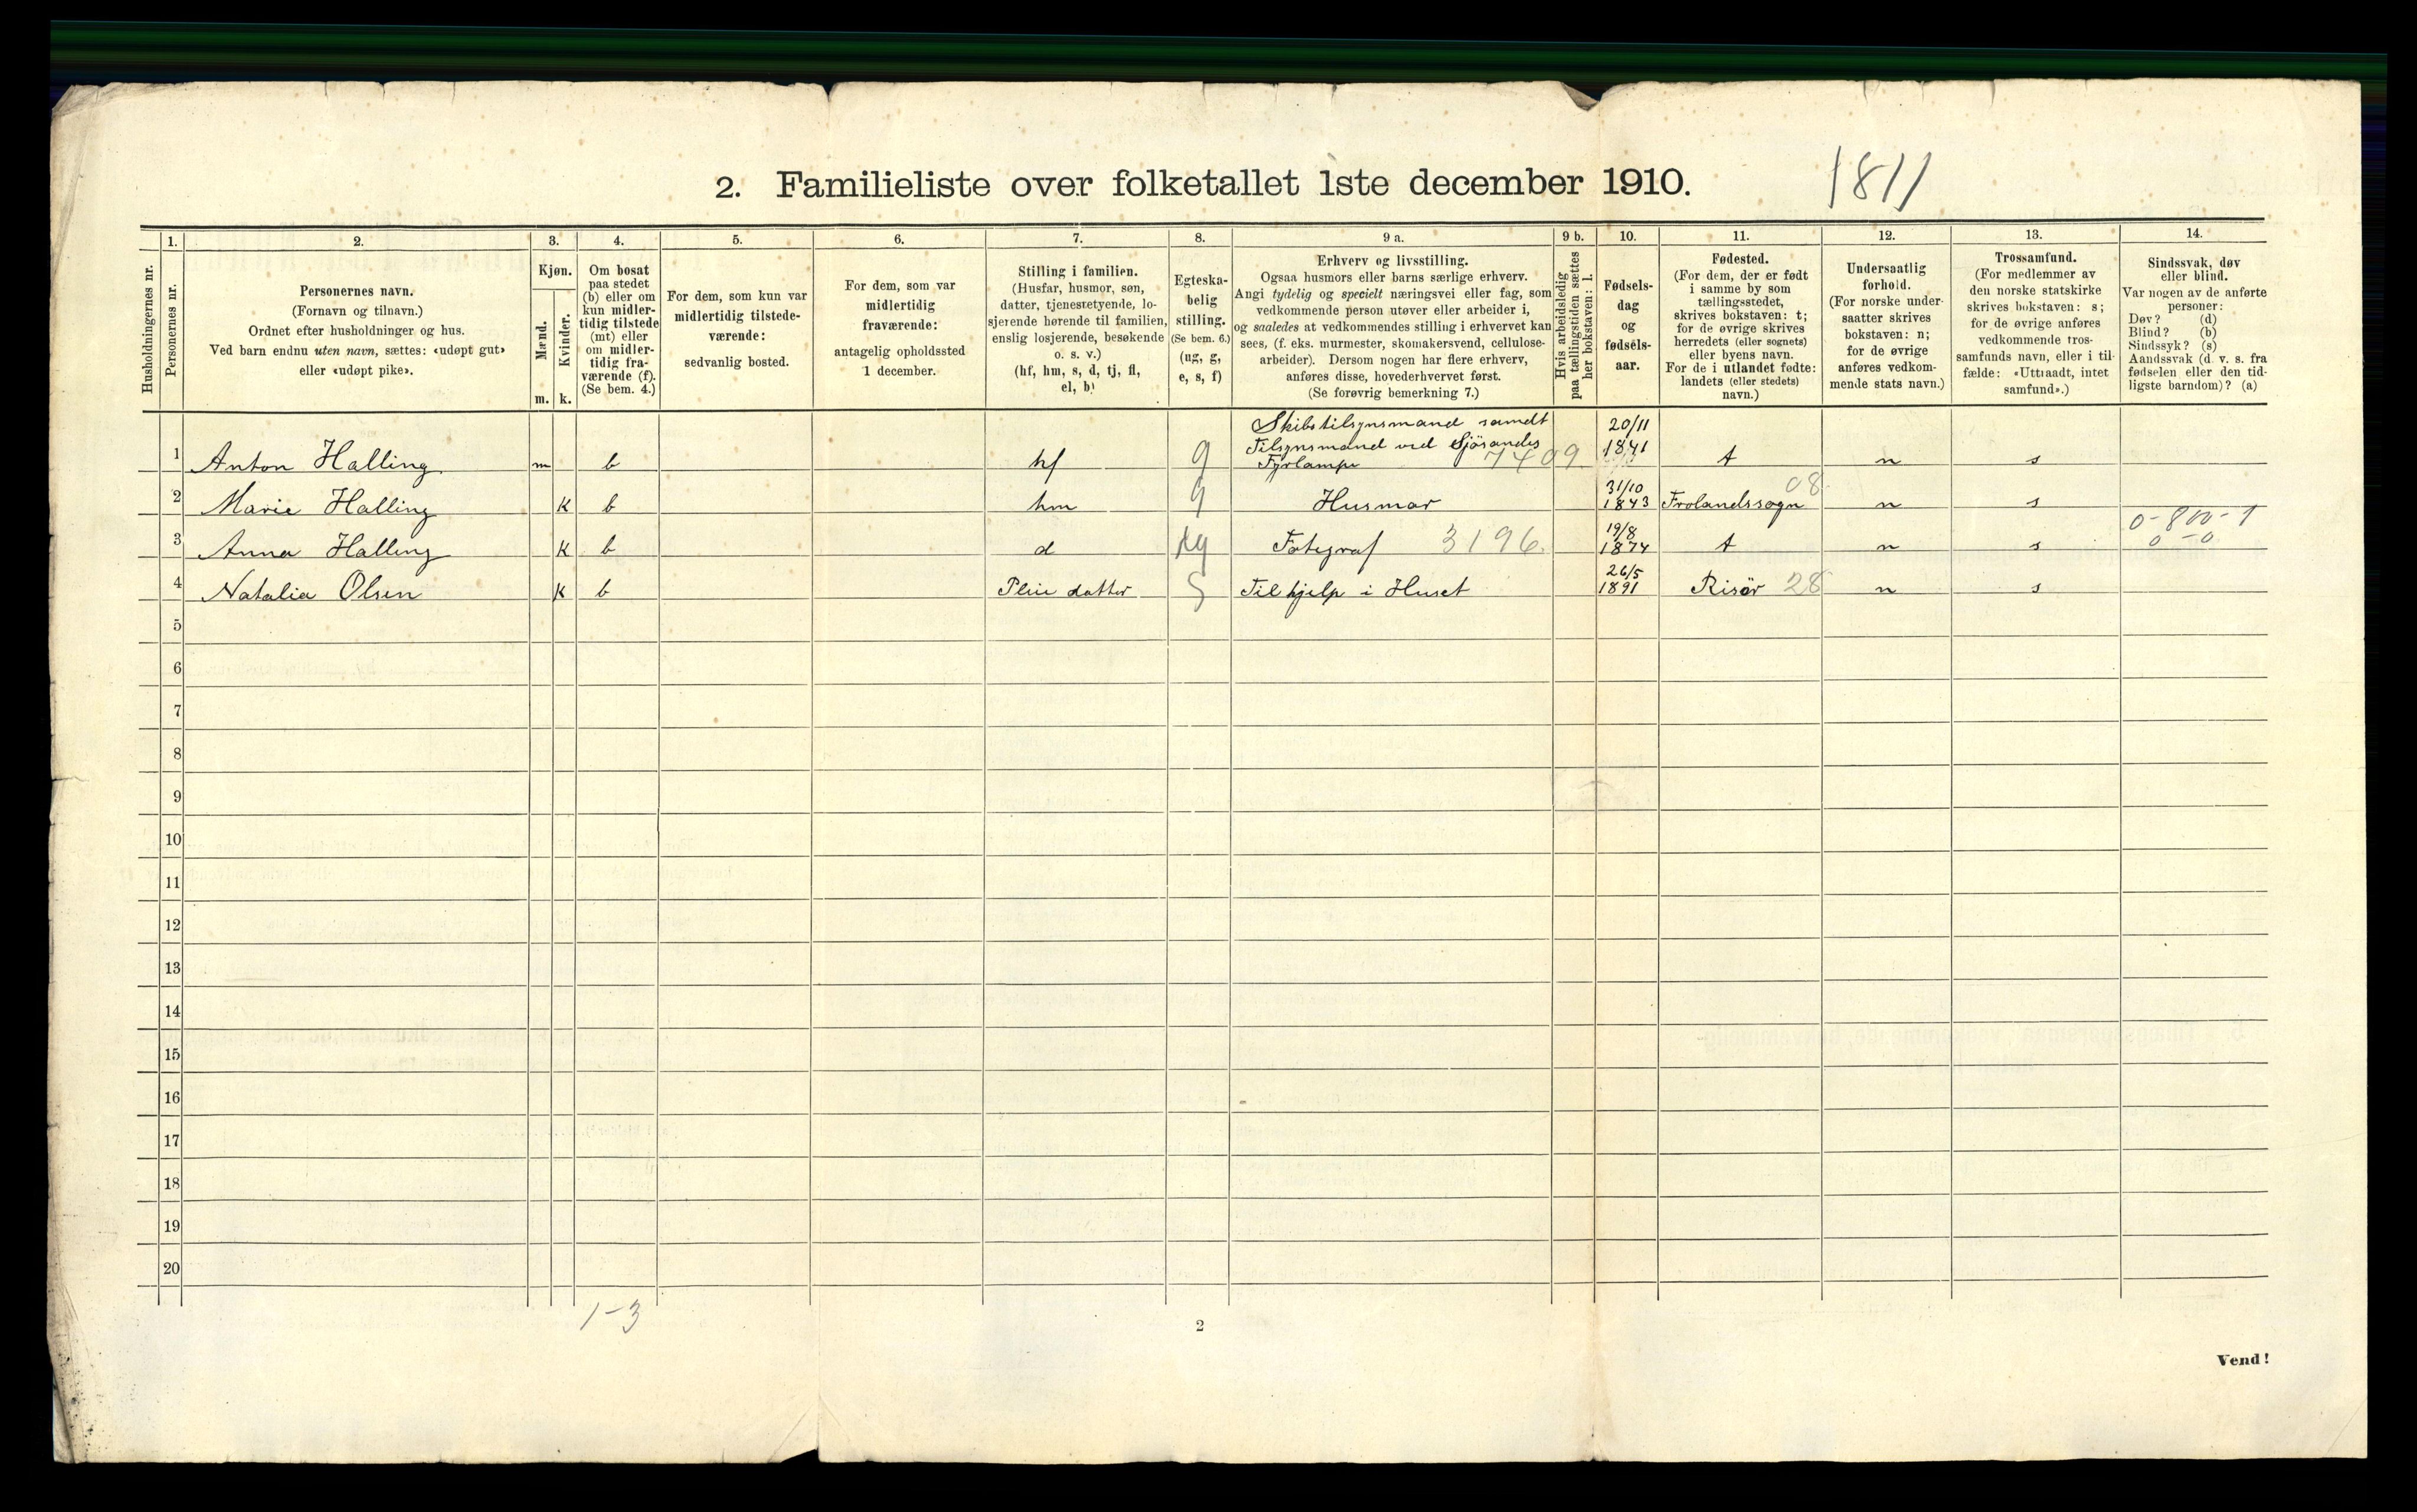 2. Familieliste over folketallet 1ste december 1910.
1811
Husholdningernes nr.
1.
Personernes nr.
2.
Personernes navn.
(Fornavn og tilnavn.)
Ordnet efter husholdninger og hus.
Ved barn endnu uten navn, sættes: «udøpt gut»
eller «udøpt pike».
3.
Kjøn.
Mænd.
Kvinder.
m.
k.
4.
Om bosat
paa stedet
(b) eller om
kun midler-
tidig tilstede
(mt) eller
om midler-
tidig fra-
værende (f).
(Se bem. 4.)
5.
For dem, som kun var
midlertidig tilstede-
værende:
sedvanlig bosted.
6.
For dem, som var
midlertidig
fraværende:
antagelig opholdssted
1 december.
7.
Stilling i familien.
(Husfar, husmor, søn,
datter, tjenestetyende, lo-
sjerende hørende til familien,
enslig losjerende, besøkende
o. s. v.)
(hf, hm, s, d, tj, fl,
el, b)
8.
Egteska-
belig
stilling.
(Se bem. 6.)
(ug, g,
e, s, f)
9 a.
Erhverv og livsstilling.
Ogsaa husmors eller barns særlige erhverv.
Angi tydelig og specielt næringsvei eller fag, som
vedkommende person utøver eller arbeider i,
og saaledes at vedkommendes stilling i erhvervet kan
sees, (f. eks. murmester, skomakersvend, cellulose-
arbeider). Dersom nogen har flere erhverv,
anføres disse, hovederhvervet først.
(Se forøvrig bemerkning 7.)
9 b.
Hvis arbeidsledig
paa tællingstiden sættes
her bokstaven: l.
10.
Fødsels-
dag
og
fødsels-
aar.
11.
Fødested.
(For dem, der er født
i samme by som
tællingsstedet,
skrives bokstaven: t;
for de øvrige skrives
herredets (eller sognets)
eller byens navn.
For de i utlandet fødte:
landets (eller stedets)
navn.)
12.
Undersaatlig
forhold.
(For norske under-
saatter skrives
bokstaven: n;
for de øvrige
anføres vedkom-
mende stats navn.)
13.
Trossamfund.
(For medlemmer av
den norske statskirke
skrives bokstaven: s;
for de øvrige anføres
vedkommende tros-
samfunds navn, eller i til-
fælde: «Uttraadt, intet
samfund».)
14.
Sindssvak, døv
eller blind.
Var nogen av de anførte
personer:
Døv? (d)
Blind? (b)
Sindssyk? (s)
Aandssvak (d. v. s. fra
fødselen eller den tid-
ligste barndom)? (a)
1 Anton Halling m b hf g Skibstilsynsmand samdt
Tilsynsmand ved Sjösandes
Fyrlampe 7409 20/11 1841 t n s
2 Marie Halling K b hm g Husmor 31/10 1843 Frolandssogn 08 n s
3 Anna Halling K b d ug Fotograf 3196. 19/8 1874 t n s 0-800-1
0-0
4 Natalia Olsen K b Pleie datter S Til hjelp i Huset 26/5 1891 Risör 28 n s
5
6
7
8
9
10
11
12
13
14
15
16
17
18
19
20
1-3
2
Vend!